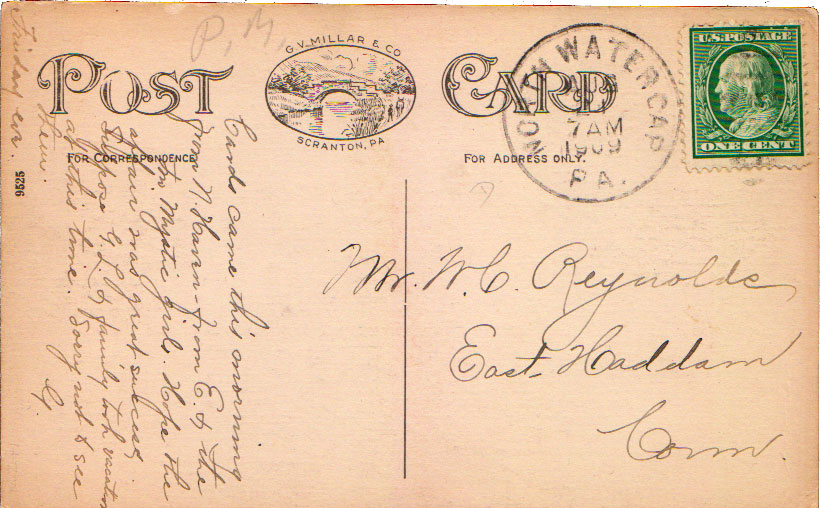 P.M.
G.V. MILLAR & CO
SCRANTON, PA
POST CARD
FOR CORRESPONDENCE
FOR ADDRESS ONLY.
NORTH WATER GAP
7AM
1909
PA.
U.S. POSTAGE
ONE CENT
9525
Friday eve.
Cards came this morning
from N. Haven - from E. & the
Mystic girl. Hope the
affair was great success,
Suppose G.L. & family took vacation
at this time. Sorry not to see
them.
G.
Mr. W.C. Reynolds
East Haddam
Conn.